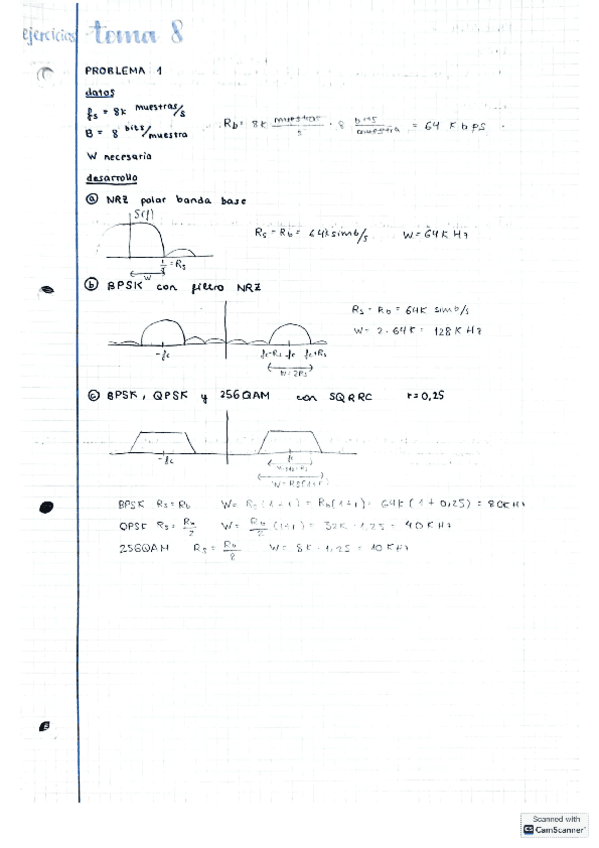 ejercicios tema 8
PROBLEMA 1
datos
fs = 8k muestras/s
B = 8 bits/muestra
Rb = 8k muestras/s · 8 bits/muestra = 64 Kbps
W necesario
desarrollo
a) NRZ polar banda base
S(f)
Rs = Rb = 64k simb/s W = 64K Hz
= Rs
W
b) BPSK con filtro NRZ
Rs = Rb = 64K simb/s
W = 2·64K = 128K Hz
-fc fc-Rs fc fc+Rs
W = 2Rs
c) BPSK, QPSK y 256QAM con SQRRC r=0,25
-fc fc
W = Rs(1+r)
BPSK Rs = Rb W = Rs(1+r) = Rb(1+r) = 64K(1+0,25) = 80KHz
QPSK Rs = Rb/2 W = Rb/2 (1+r) = 32K · 1,25 = 40KHz
256QAM Rs = Rb/8 W = 8K · 1,25 = 10KHz
Scanned with
CS CamScanner